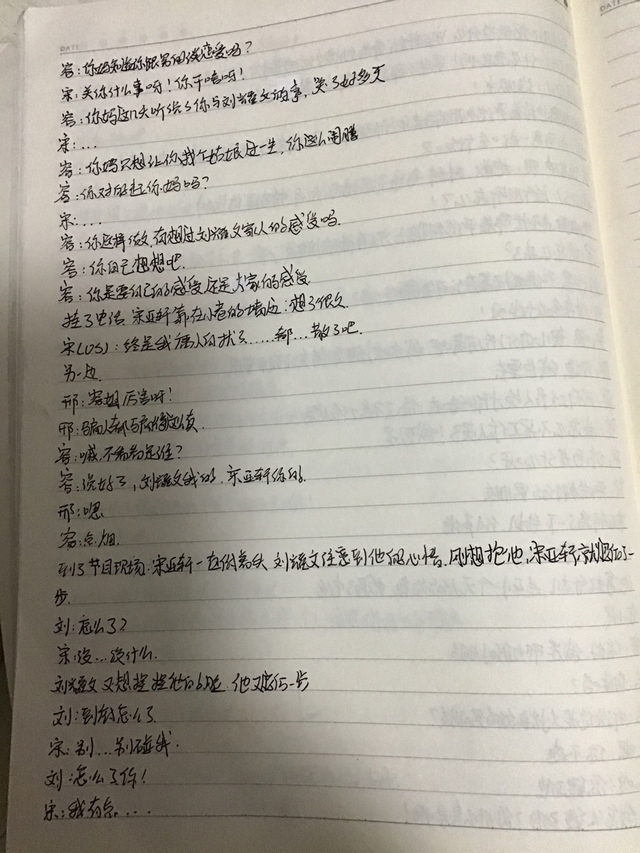 DATE
容:你妈知道你跟男的谈恋爱吗?
宋:关你什么事呀!你干嘛呀!
容:你妈这几天听说了你与刘耀文的事,哭了好多天
宋:...
容:你妈只想让你找个姑娘过一生,你这么闹腾
容:你对的起你妈吗?
宋:...
容:你这样做,有想过刘耀文家人的感受吗.
容:你自己想想吧.
容:你是要自己的感受还是大家的感受
挂了电话,宋亚轩靠在小巷的墙边,想了很久
宋(OS):终是我痛人的扰了......都...散了吧.
另一边
邢:容姐厉害呀!
邢:骗人都
容:喊,不看看是谁?
容:说好了,刘耀文我的.宋亚轩你的.
邢:嗯
容:
到了节目现场,宋亚轩一直很丧失 刘耀文注意到他的心情.刚想抱他,宋亚轩就退后了一
步.
刘:怎么了?
宋:没...没什么.
刘耀文又想捏捏他的脸.他又退后一步
刘:到底怎么了.
宋:别...别碰我.
刘:怎么了你!
宋:我有点....